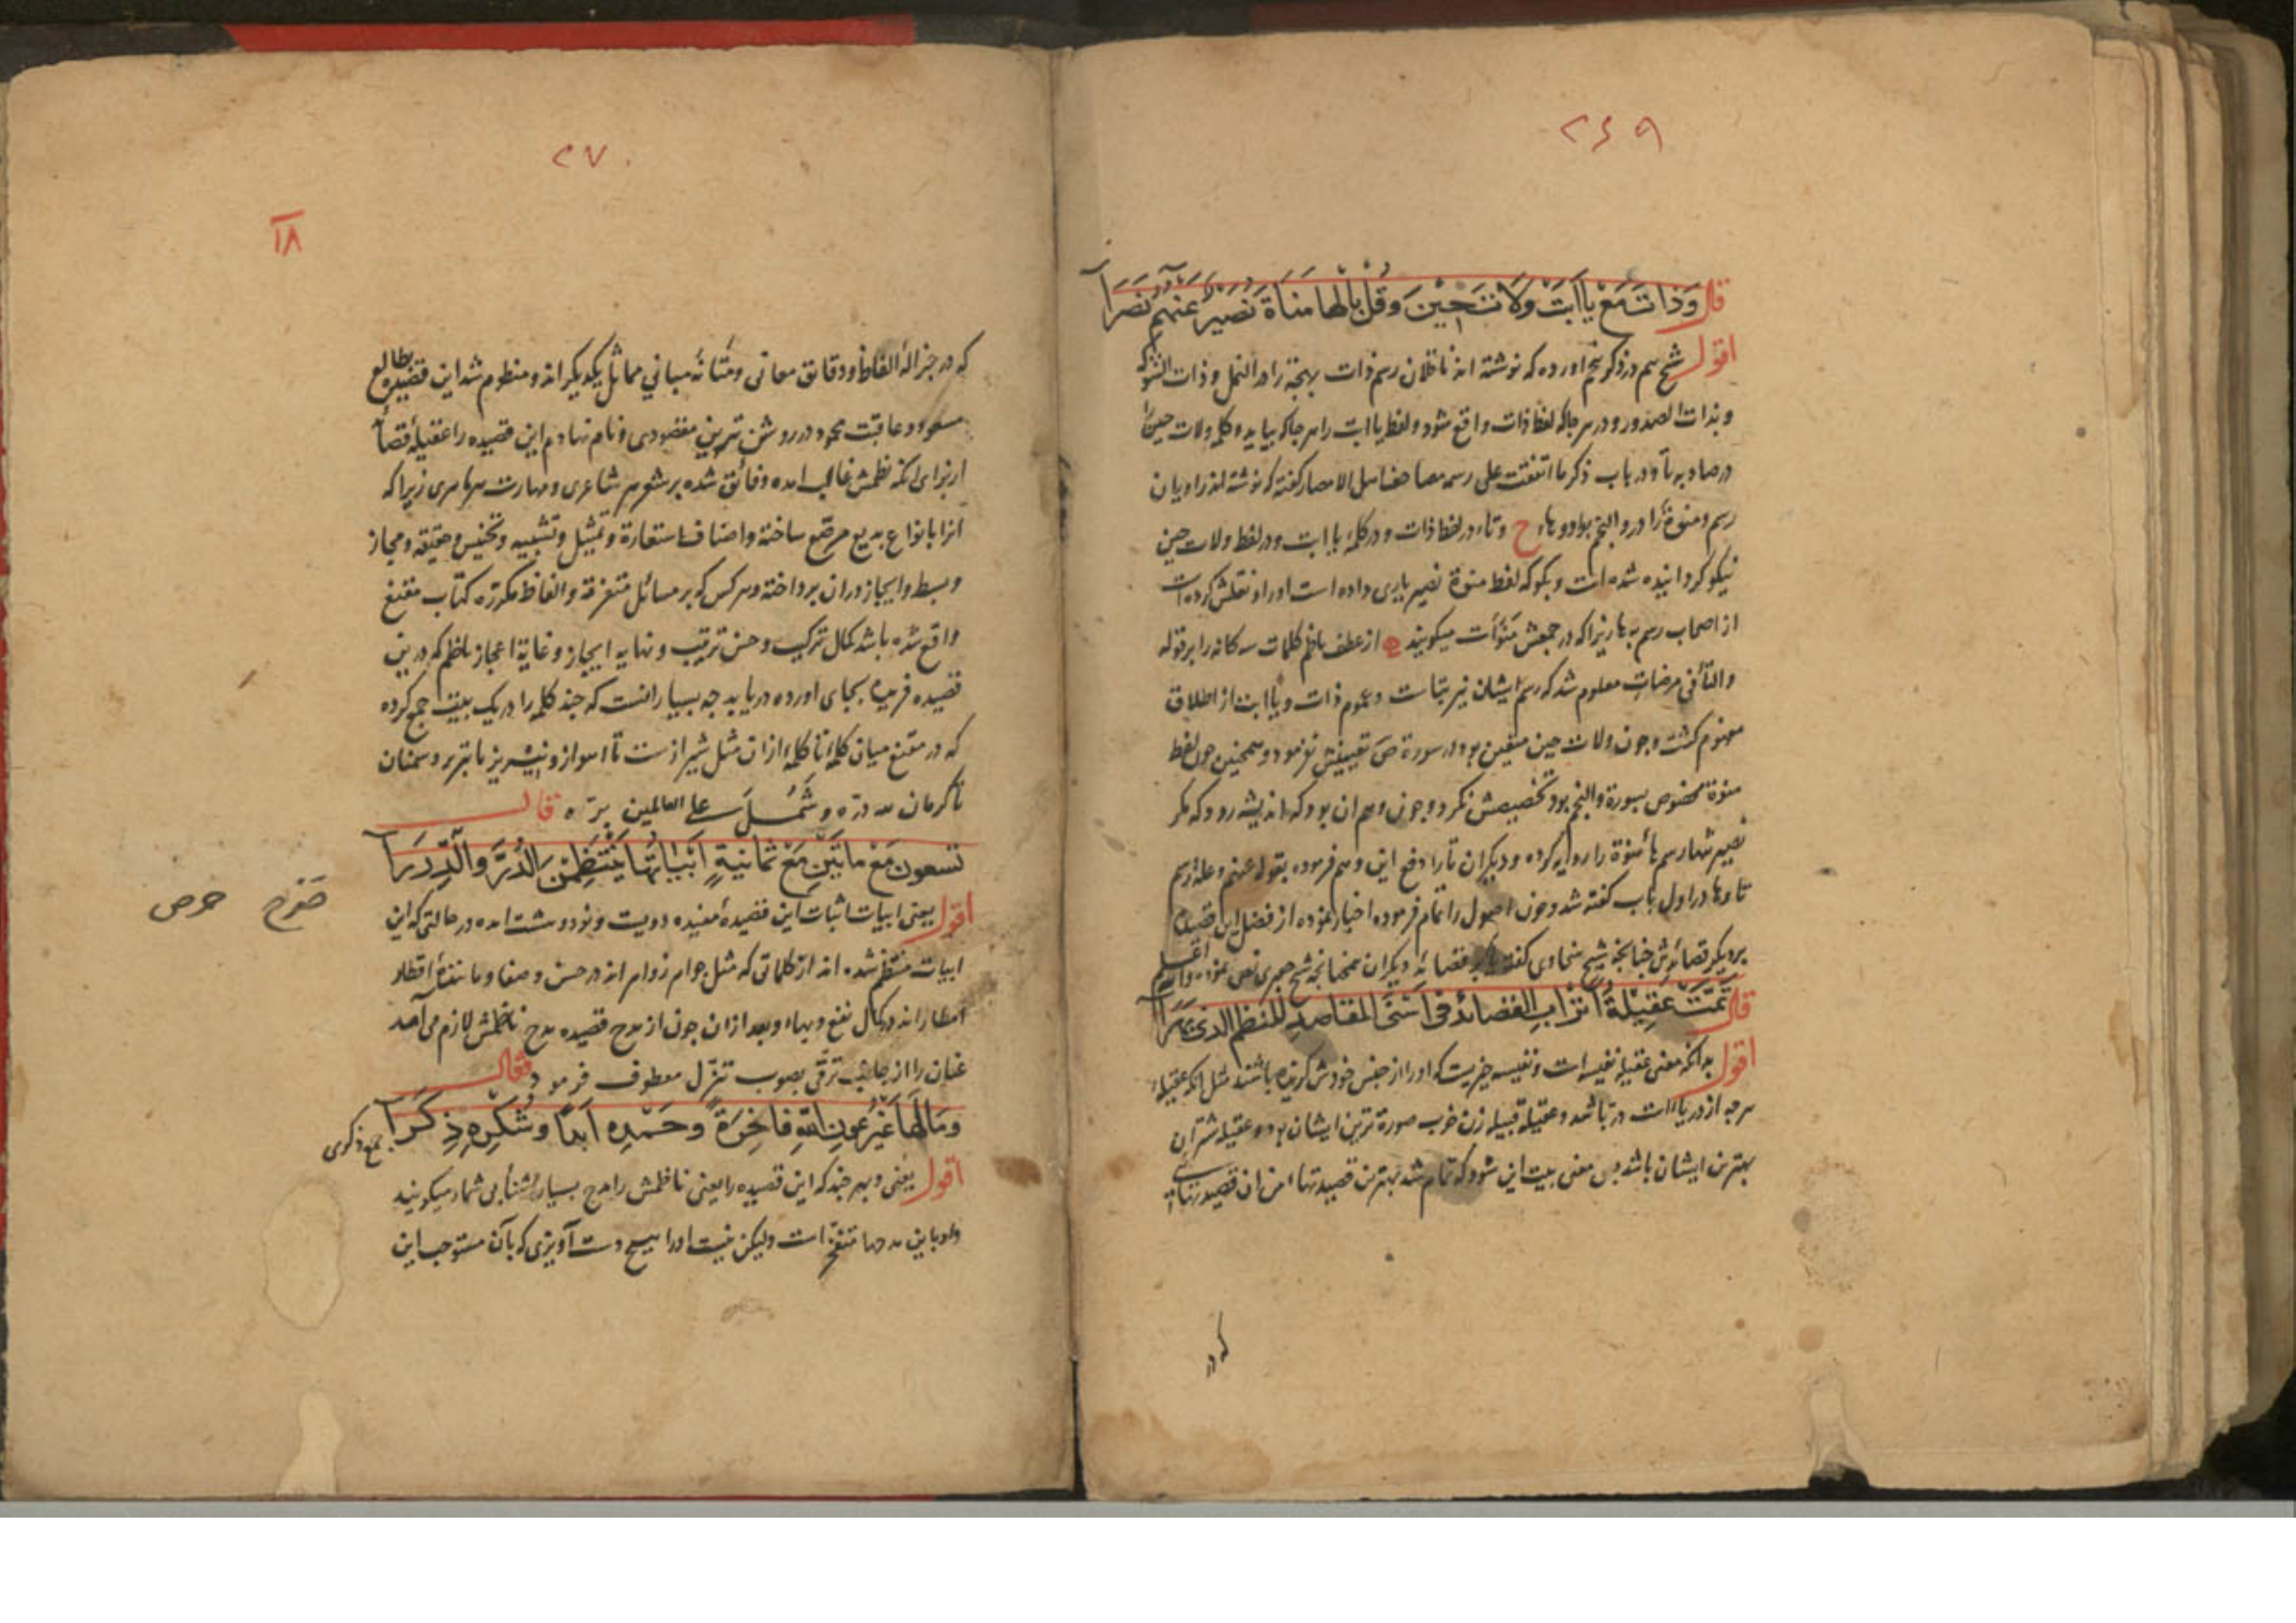 ٢٦٩
قال وَذَاتَ مَعْ يَا اَبَتْ وَلَاتَ حِيْنَ وَقُلْ بِالْهَا مَنَاةَ نَصِيْرٌ عَنْهُمُ نَصَرَا
اقول شيخ هم در ذکر اورده که نوشته اند ناقلان رسم ذات بهجة را در النمل و ذات الشوکة
و بذات الصدور و در هر جا که لفظ ذات واقع شود و لفظ یا ابت را هر جا که بیاید و کلمه ولات حین
در صاد به تا و در باب ذکر ما اتفقت علی رسمه مصاحف اهل الامصار گفته که نوشته اند راویان
رسم و منوة را در والنجم بواو و هاء ح و تاء در لفظ ذات و در کلمه یا ابت و در لفظ ولات حین
نیکو کردانیده شده است و بکو که لفظ منوة نصیر یاری داده است او را و نقلش کرده است
از اصحاب رسم به ها زیرا که در جمعش منوات میکویند از عطف ناظم کلمات سه کانه را بر قوله
والتا فی مرضات معلوم شد که رسم ایشان نیز بتاست و عموم ذات و یا ابت از اطلاق
مفهوم کشت و چون ولات حین متعین بود در سورة ص تعیینش نفرمود و همچنین چون لفظ
منوة مخصوص بسورة والنجم بود تخصیصش نکرد و چون وهم ان بود که اندیشه رود که مکر
نصیر تنها رسم هاء منوة را روایه کرده و دیکران تا را دفع این وهم فرموده بقوله عنهم و علة رسم
تا و ها در اول باب گفته شد و چون اصول را تمام فرموده اخبار نموده از فضل این قصیده
بر دیکر قصائدش چنانچه شیخ سخاوی گفته یا بر قصائد دیکران همچنانچه شیخ جعبری نص نموده
قال تَمَّتْ عَقِيْلَةُ اَتْرَابِ القَصَائِدِ فِي اَسْنَى المَقَاصِدِ لِلنَّظْمِ الَّذِي بَهَرَا
اقول بدانکه معنی عقیله نفیسه است و نفیسه چیزیست که او را از جنس خودش کزیده باشند مثل انکه عقیلهٔ
هر چه از دریاست در باشد و عقیلهٔ قبیله زن خوب صورة ترین ایشان بود و عقیله شتران
بهترین ایشان باشد پس معنی بیت این شود که تمام شد بهترین قصیدتها از ان قصیدتهای
که در
٢٧٠
١٨
که در جزالة الفاظ و دقائق معانی و متانة مبانی مماثل یکدیکرند و منظوم شد این قصیده بطالع
مسعود و عاقبت محمود در روشن ترین مقصودی و نام نهادم این قصیده را عقیله
از برای انکه نظمش غالب امده و فائق شده بر شعر هر شاعری و مهارت هر ماهری زیرا که
انرا بانواع بدیع مرصع ساخته و اصناف استعارة و تمثیل و تشبیه و تجنیس و حقیقة و مجاز
و بسط و ایجاز در ان پرداخته و هر کس که بر مسائل متفرقة و الفاظ مکررة کتاب مقنع
واقع شده باشد کمال ترکیب و حسن ترتیب و نهایه ایجاز و غایة اعجاز ناظم که درین
قصیده فریده بجای اورده دریابد چه بسیار است که چند کلمه را در یک بیت جمع کرده
که در مقنع میان کلمه تا کلمه ازان مثل شیراز ست تا اهواز و نیریز تا تبریز و سمنان
تا کرمان لله درّه و شمل علی العالمین برّه قال
تِسْعُونَ مَعْ مِاْتَيْنِ مَعْ ثَمَانِيَةٍ اَبْيَاتُهَا يَنْتَظِمْنَ الدُّرَّ وَالدِّرَرَا
اقول یعنی ابیات این قصیدهٔ مفیده دویست و نود و هشت امده در حالتی که این
ابیات منتظم شده اند از کلماتی که مثل جواهر زواهر اند در حسن و صفا و مانند اقطار
امطار اند در کمال نفع و بهاء و بعد ازان چون از مدح قصیده مدح ناظمش لازم می آمد
عنان را از جانب ترقی بصوب تنزل معطوف فرمود فقال
وَمَا لَهَا غَيْرُ عَوْنِ اللّٰهِ فَاخِرَةً وَحَمْدِهِ اَبَدًا وَشُكْرِهِ ذِكَرَا
جمع ذکری
اقول یعنی و هر چند که این قصیده را یعنی ناظمش را مدح بسیار و ثنا بی شمار میکویند
و او باین مدحها مفتخر است ولیکن نیست او را هیچ دست آویزی که بآن مستوجب این